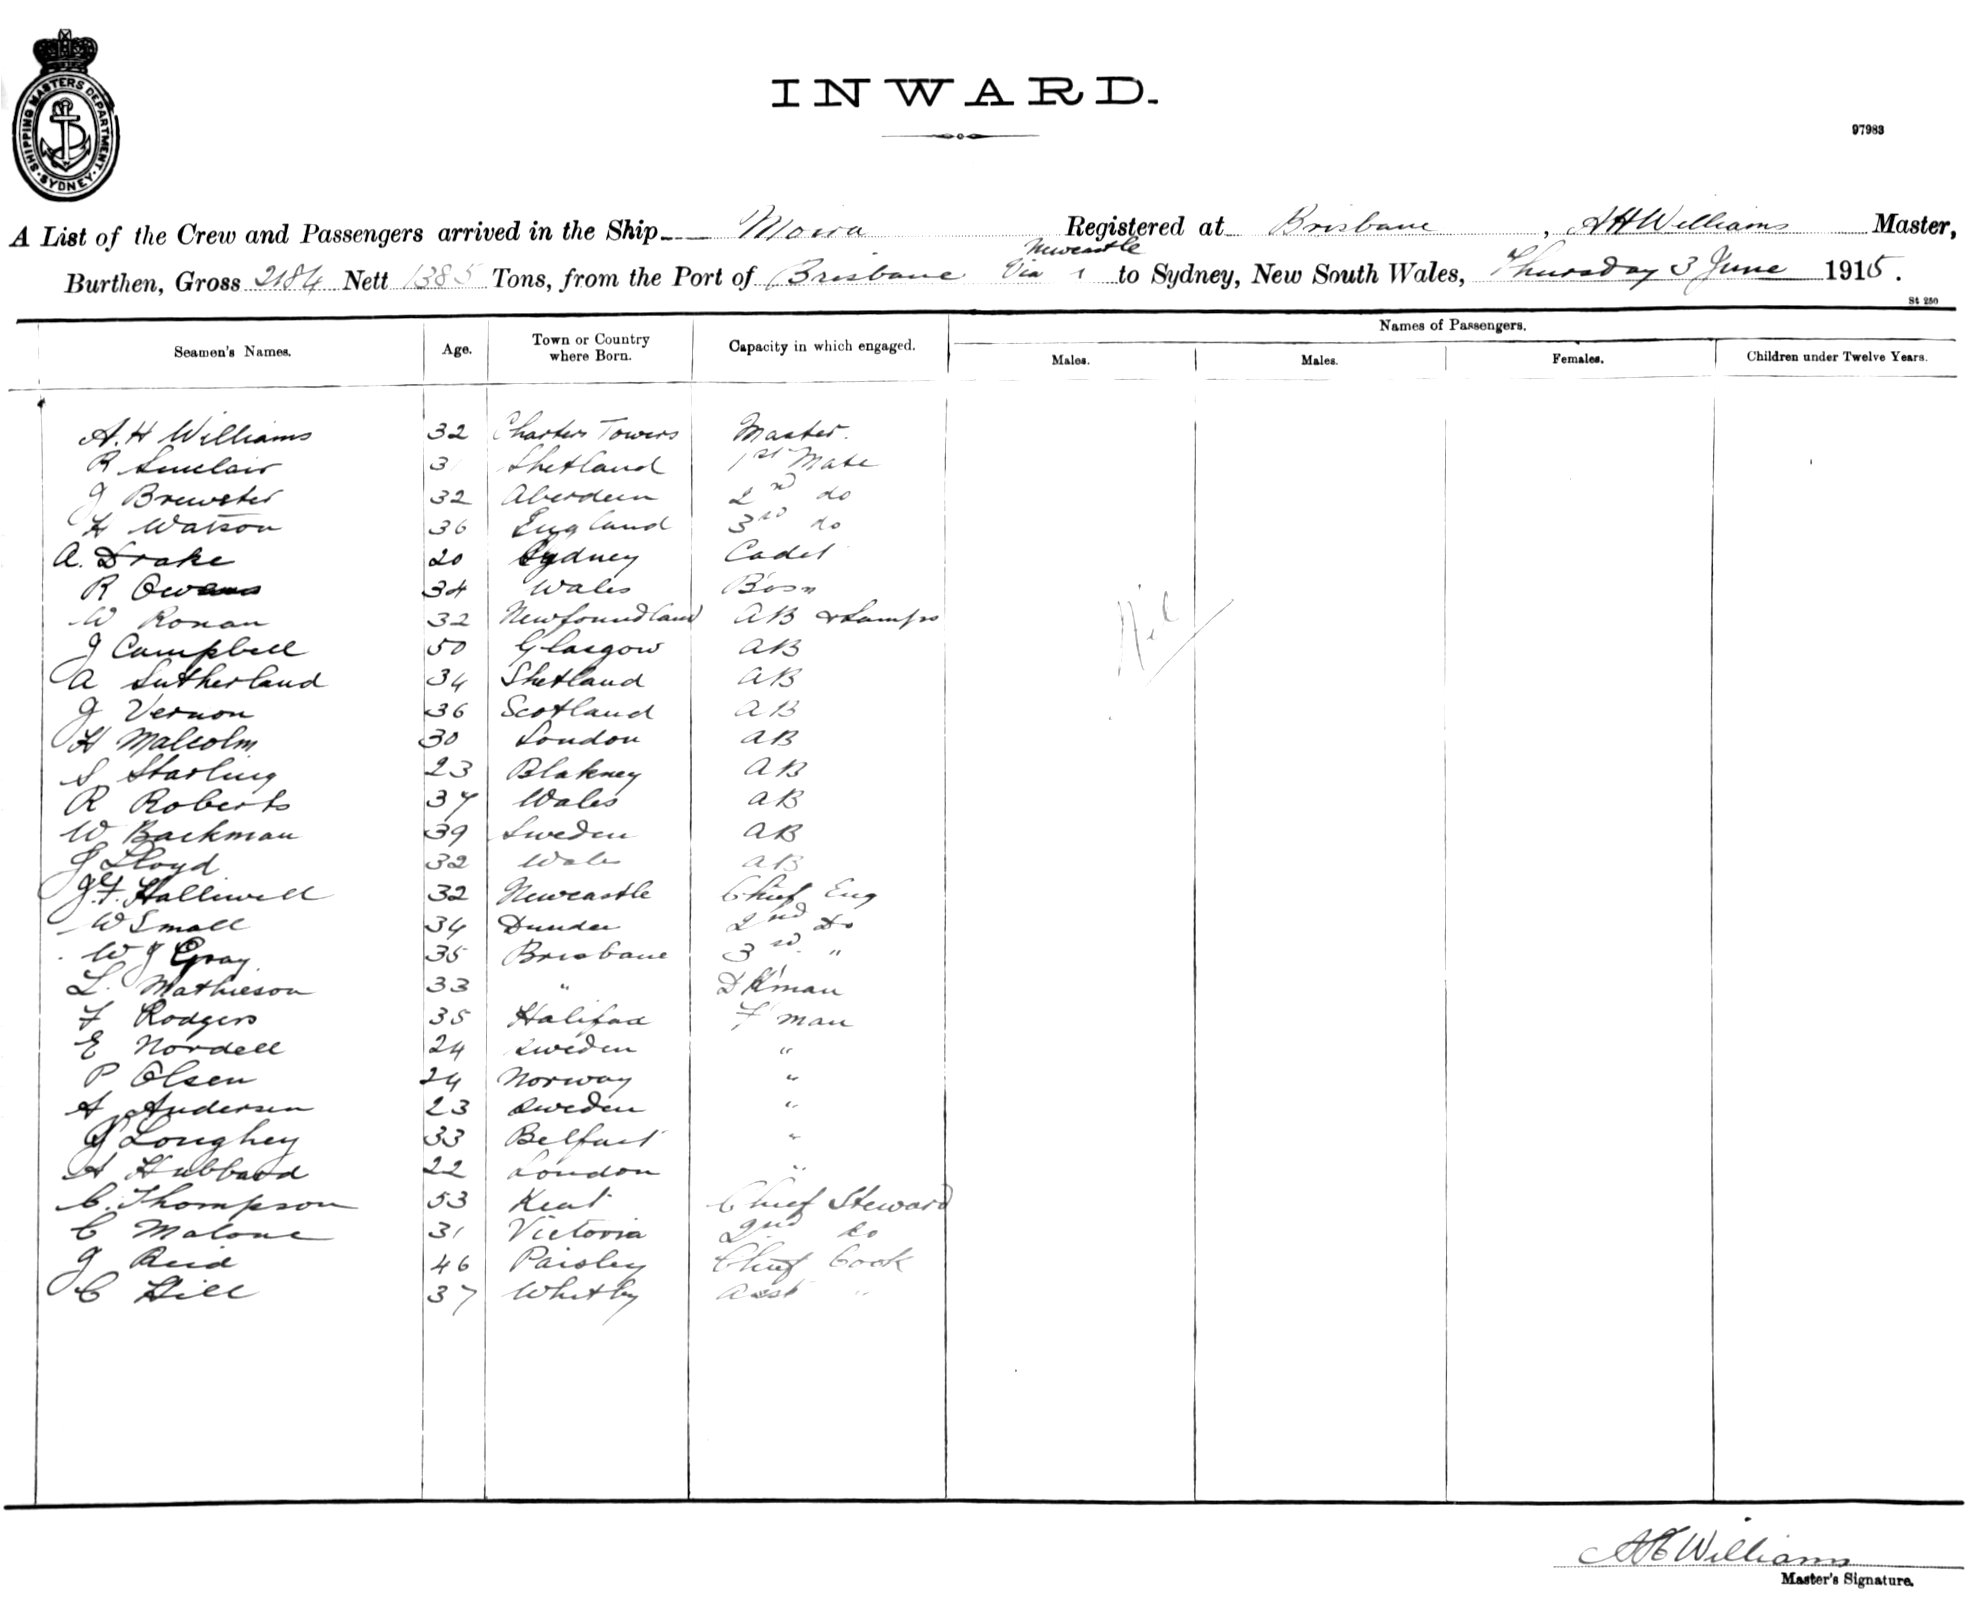 SHIPPING MASTERS DEPARTMENT. SYDNEY.
INWARD.
97983
A List of the Crew and Passengers arrived in the Ship Moira Registered at Brisbane, A H Williams Master,
Newcastle
Burthen, Gross 2184 Nett 1385 Tons, from the Port of Brisbane Via " to Sydney, New South Wales, Thursday 3 June 1915.
St 250
Names of Passengers.
Seamen's Names. Age. Town or Country where Born. Capacity in which engaged. Males. Males. Females. Children under Twelve Years.
A. H Williams 32 Charters Towers Master.
R Sinclair 31 Shetland 1st Mate
J Brewster 32 Aberdeen 2nd do
H Watson 36 England 3rd do
A. Drake 20 Sydney Cadet
R Owens 34 Wales Bosn
W Ronan 32 Newfoundland AB & Lamps
J Campbell 50 Glasgow AB
A Sutherland 34 Shetland AB
J Vernon 36 Scotland AB
H Malcolm 30 London AB
S Starling 23 Blakney AB
R Roberts 37 Wales AB
W Backman 39 Sweden AB
J Lloyd 32 Wales AB
J. F. Halliwell 32 Newcastle Chief Eng
W Small 34 Dundee 2nd Do
W J Gray 35 Brisbane 3rd "
L. Mathieson 33 " DK'man
F Rodgers 35 Halifax F'man
E Nordell 24 Sweden "
P Olsen 24 Norway "
A Andersen 23 Sweden "
J Loughey 33 Belfast "
A Hubbard 22 London "
C. Thompson 53 Kent Chief Steward
C Malone 31 Victoria 2nd do
J Reid 46 Paisley Chief Cook
C Hill 37 Whitby Asst "
Nil
A H Williams
Master's Signature.